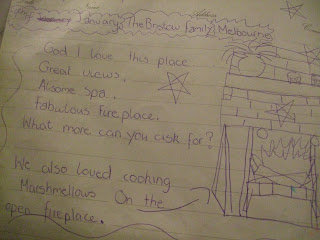 January The Brastow family Melbourne
God I love this place
Great views,
Alsome Spa.
Fabulous Fireplace.
What more can you ask for?
We also loved cooking
Marshmellows On the
open fireplace.